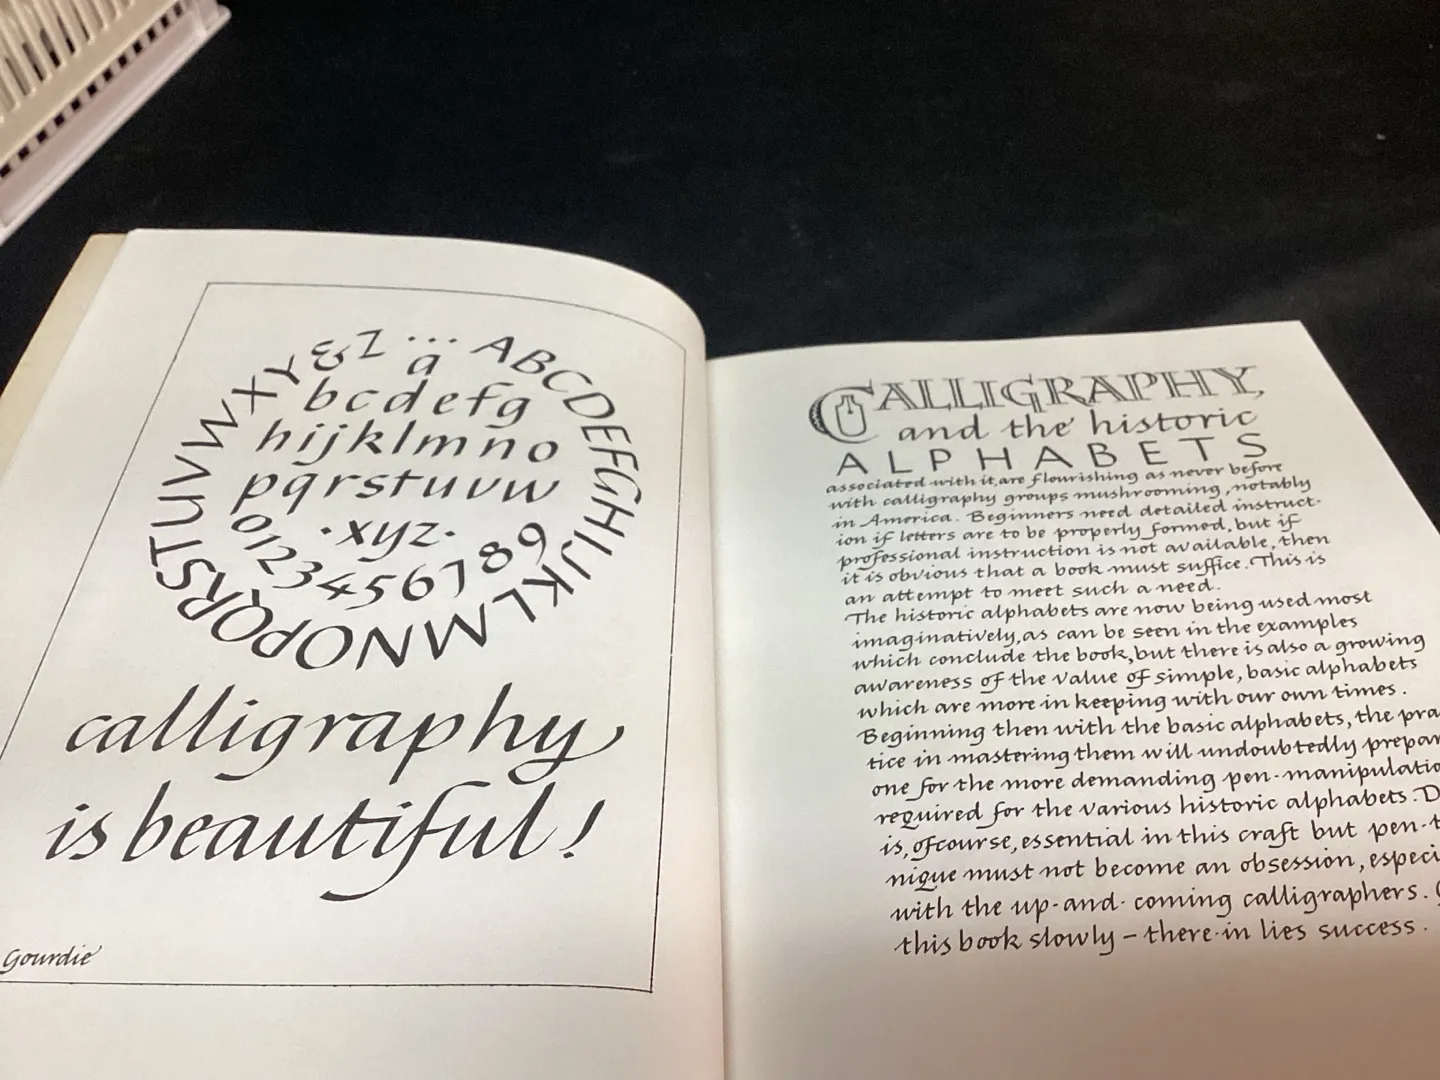 ... ABCDEFGHIJKLMNOPQRSTUVWXY&Z
a
bcdefg
hijklmno
pqrstuvw
·xyz·
0123456789
calligraphy
is beautiful!
Gourdie
CALLIGRAPHY,
and the historic
ALPHABETS
associated with it, are flourishing as never before
with calligraphy groups mushrooming, notably
in America. Beginners need detailed instruct-
ion if letters are to be properly formed, but if
professional instruction is not available, then
it is obvious that a book must suffice. This is
an attempt to meet such a need.
The historic alphabets are now being used most
imaginatively, as can be seen in the examples
which conclude the book, but there is also a growing
awareness of the value of simple, basic alphabets
which are more in keeping with our own times.
Beginning then with the basic alphabets, the pra
tice in mastering them will undoubtedly prepar
one for the more demanding pen-manipulatio
required for the various historic alphabets. D
is, of course, essential in this craft but pen-t
nique must not become an obsession, especi
with the up-and-coming calligraphers.
this book slowly – there-in lies success.